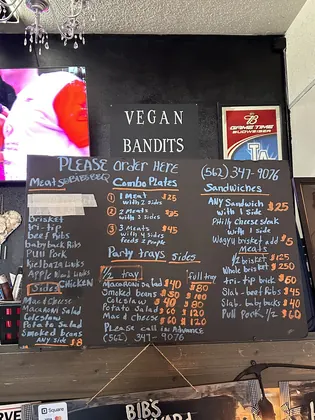 VEGAN
BANDITS
GAME TIME
BUDWEISER
LA
PLEASE Order HERE
(562) 347-9076
Meats
Brisket
tri-tip
beef Ribs
babyback Ribs
Pull Pork
Abelies Links
Apple Bowl Links
CHICKEN
Sides
Mac & Cheese
Macaroni Salad
Coleslaw
Potato Salad
Smoked beans
ANY side $8
Combo Plates
1 1 Meat $25
with 2 sides
2 2 Meats $35
with 3 sides
3 3 Meats $45
with 4 sides
feeds 2 people
Party trays Sides
1/2 tray full tray
Macaroni Salad $40 $80
Smoked beans $50 $100
Coleslaw $40 $80
Potato Salad $60 $120
Mac & Cheese $60 $120
Please call in Advance
(562) 347-9076
Sandwiches
ANY Sandwich $25
with 1 side
Philly Cheese Steak
with 1 side
Wagyu brisket add $5
Meats
1/2 brisket $125
Whole brisket $250
tri-tip brick $60
Slab-beef Ribs $45
Slab-baby backs $40
Pull Pork 1/2 $60
Square
BIB'S